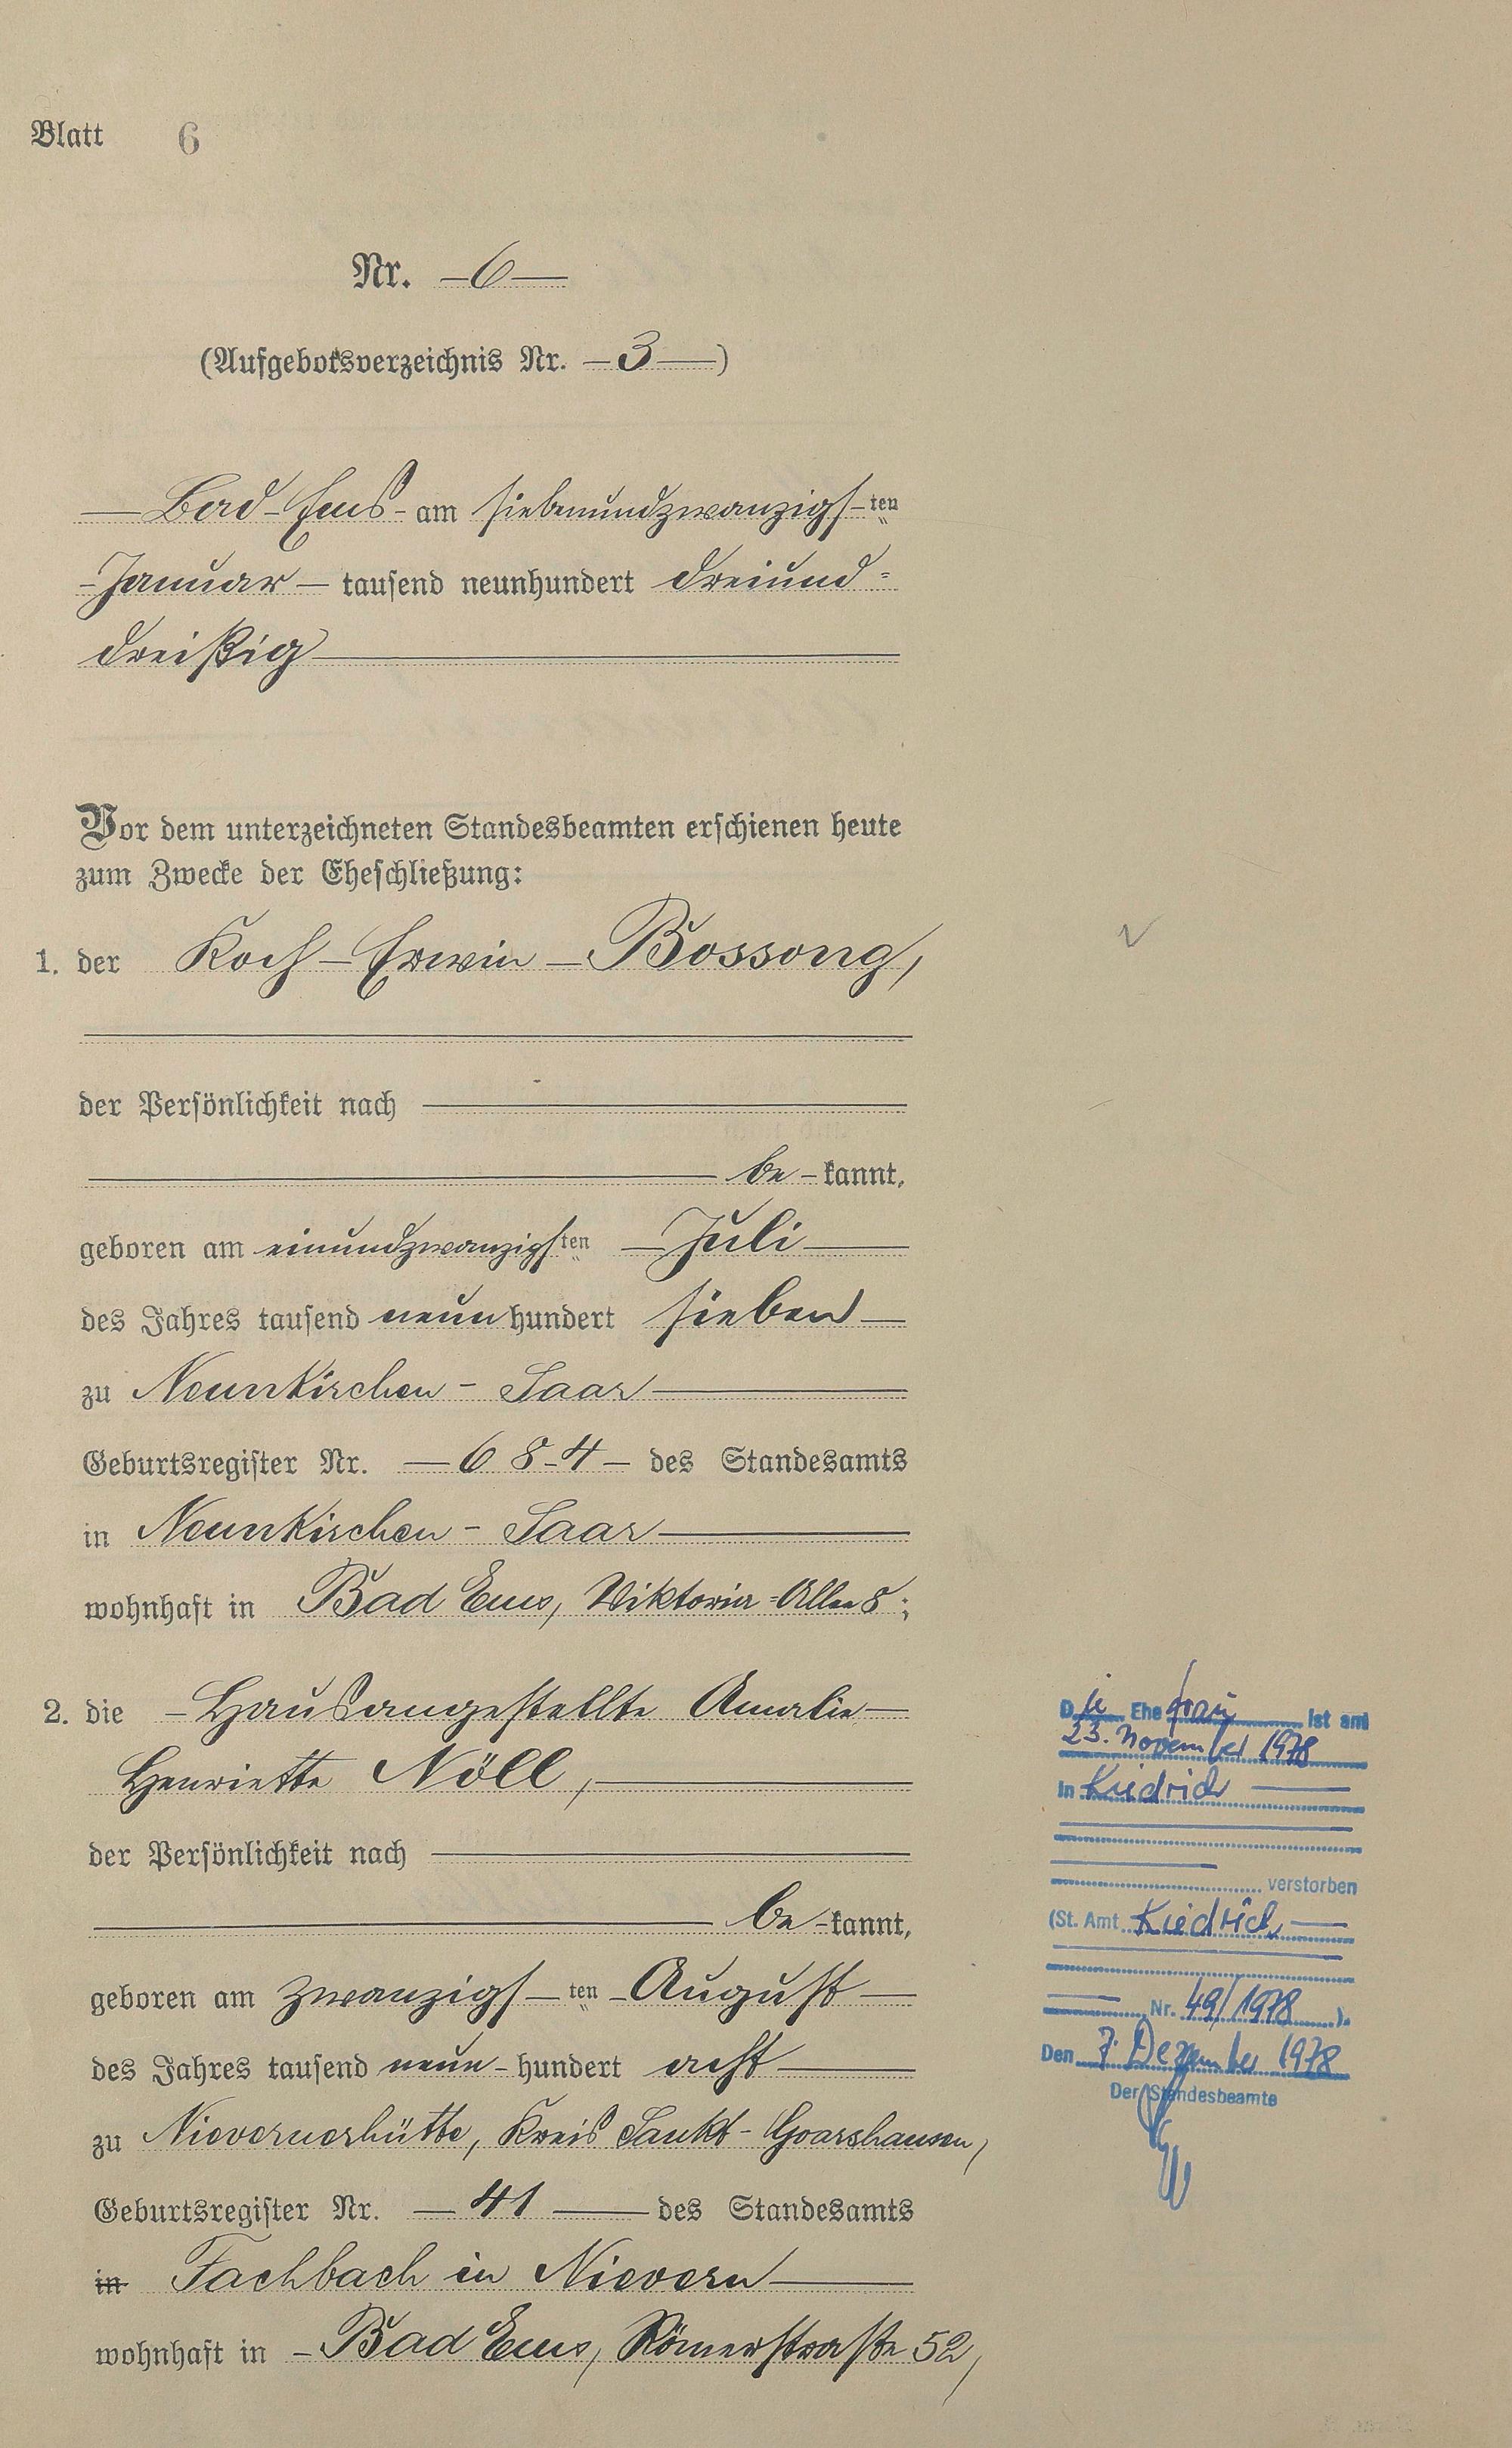 Blatt 6
Nr. – 6 –
(Aufgebotsverzeichnis Nr. – 3 – )
– Bad-Ems - am siebenundzwanzigs-ten
- Januar – tausend neunhundert dreiund=
dreißig –
Vor dem unterzeichneten Standesbeamten erschienen heute
zum Zwecke der Eheschließung:
1. der Koch – Erwin – Bossong,
der Persönlichkeit nach –
– be – kannt,
geboren am einundzwanzigsten – Juli –
des Jahres tausend neun hundert sieben –
zu Neunkirchen - Saar –
Geburtsregister Nr. – 684 – des Standesamts
in Neunkirchen - Saar –
wohnhaft in Bad Ems, Viktoria-Allee 8;
2. die – Hausangestellte Amalie –
Henriette Nöll, –
der Persönlichkeit nach –
– be – kannt,
geboren am zwanzigs – ten – August –
des Jahres tausend neun – hundert acht –
zu Nievernerhütte, Kreis Sankt-Goarshausen,
Geburtsregister Nr. – 41 – des Standesamts
in Fachbach in Nievern –
wohnhaft in – Bad Ems, Römerstraße 52,
Die Ehefrau ist am
23. November 1978
in Kiedrich –
verstorben
(St. Amt Kiedrich –
Nr. 49/1978 ).
Den 7. Dezember 1978
Der Standesbeamte